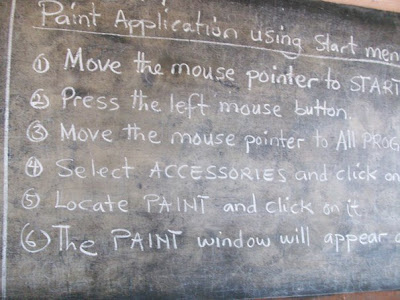 Paint Application using Start men
① Move the mouse pointer to START
② Press the left mouse button.
③ Move the mouse pointer to All PROG
④ Select ACCESSORIES and click on
⑤ Locate PAINT and click on it
⑥ The PAINT window will appear o